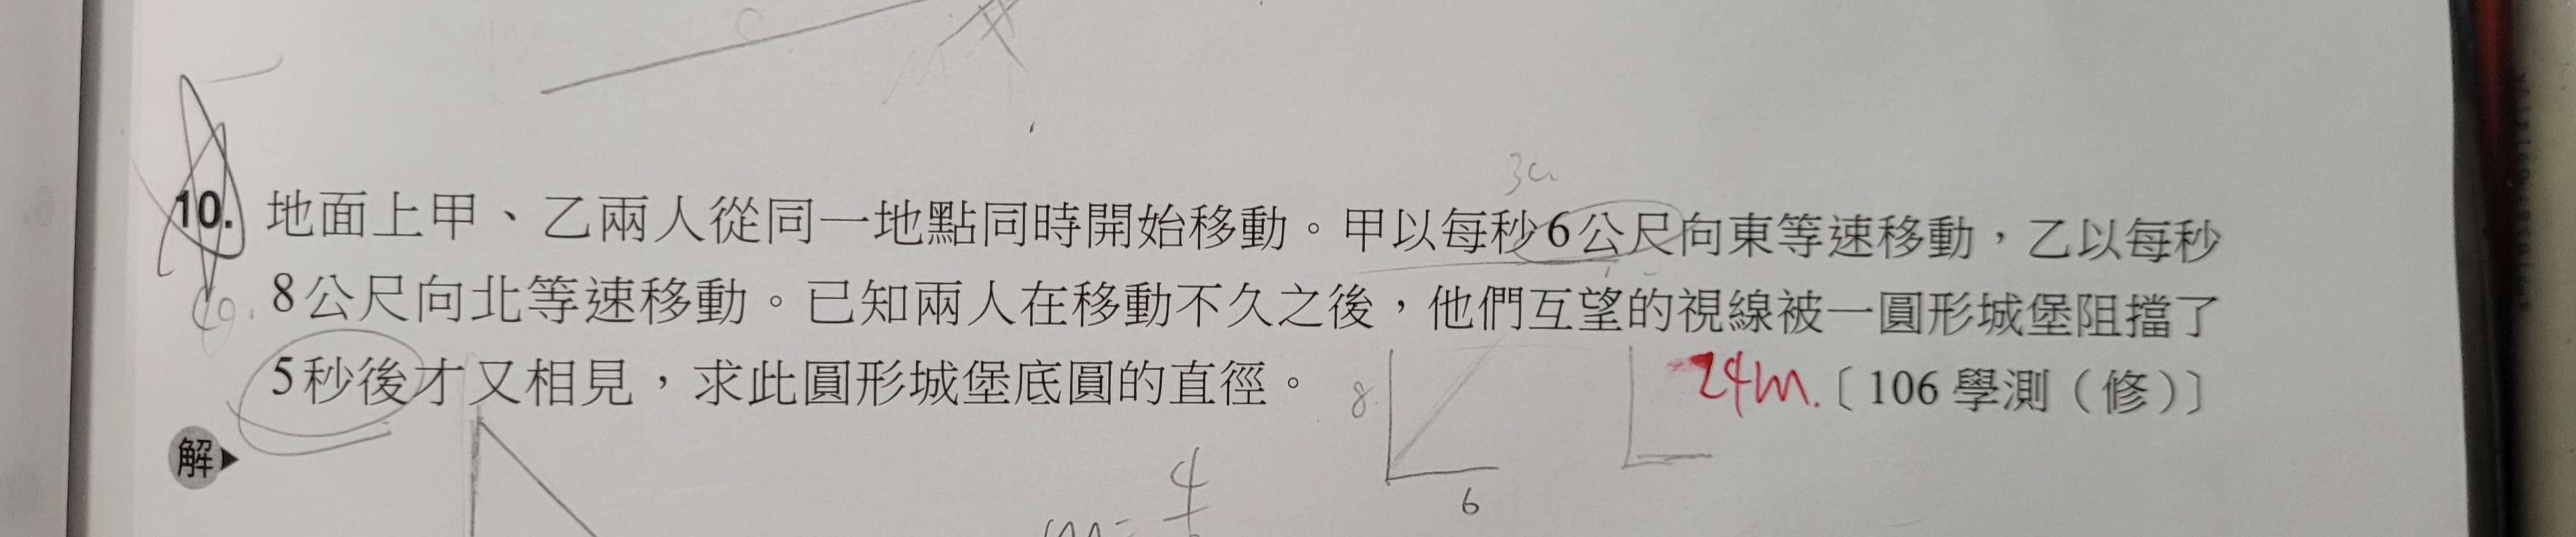 3a
10. 地面上甲、乙兩人從同一地點同時開始移動。甲以每秒6公尺向東等速移動，乙以每秒
8公尺向北等速移動。已知兩人在移動不久之後，他們互望的視線被一圓形城堡阻擋了
5秒後才又相見，求此圓形城堡底圓的直徑。 24m. 〔106學測（修）〕
8
解▶
4
6
m=